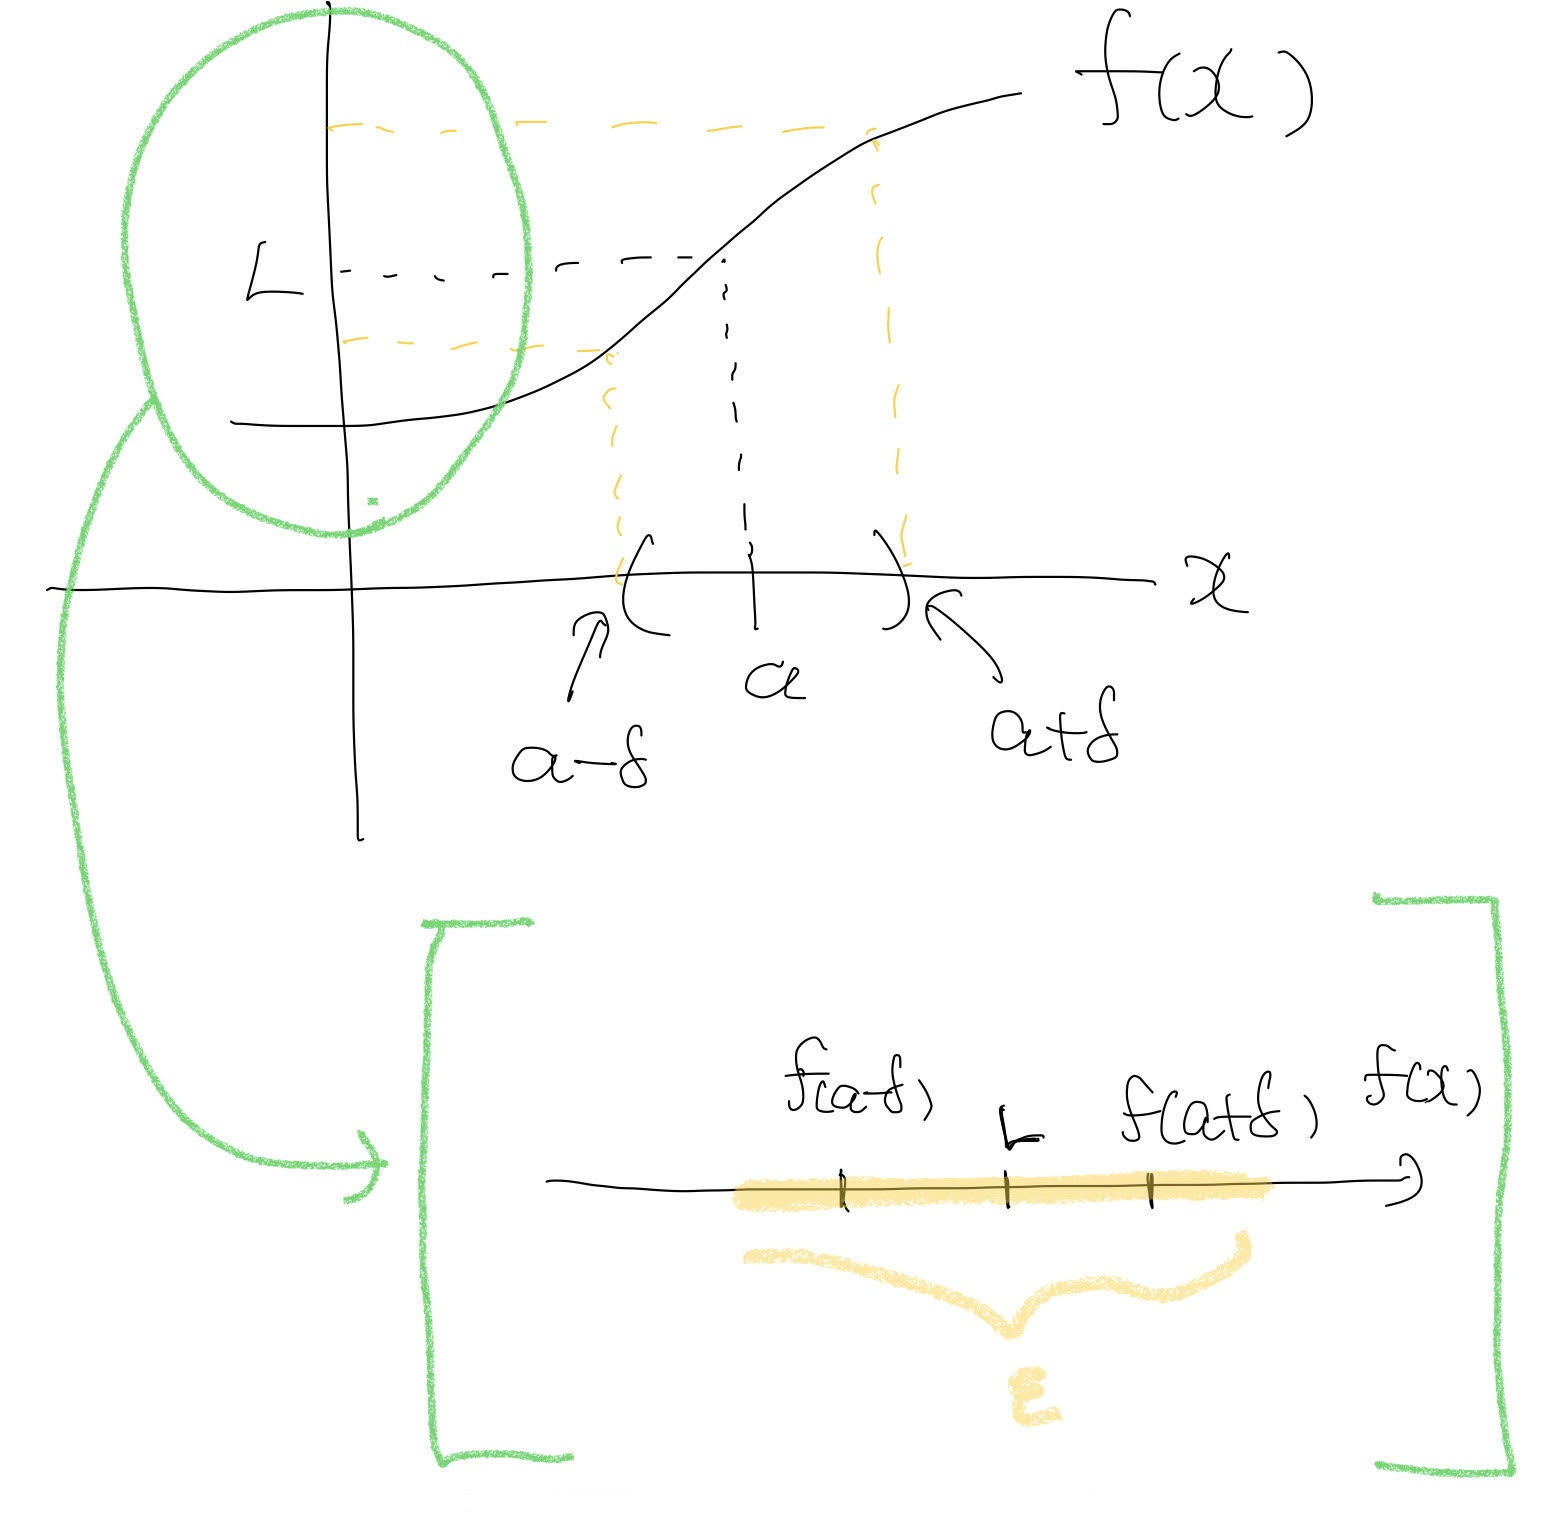 f(x)
L
x
a
a-δ
a+δ
f(a-δ)
L
f(a+δ)
f(x)
ε